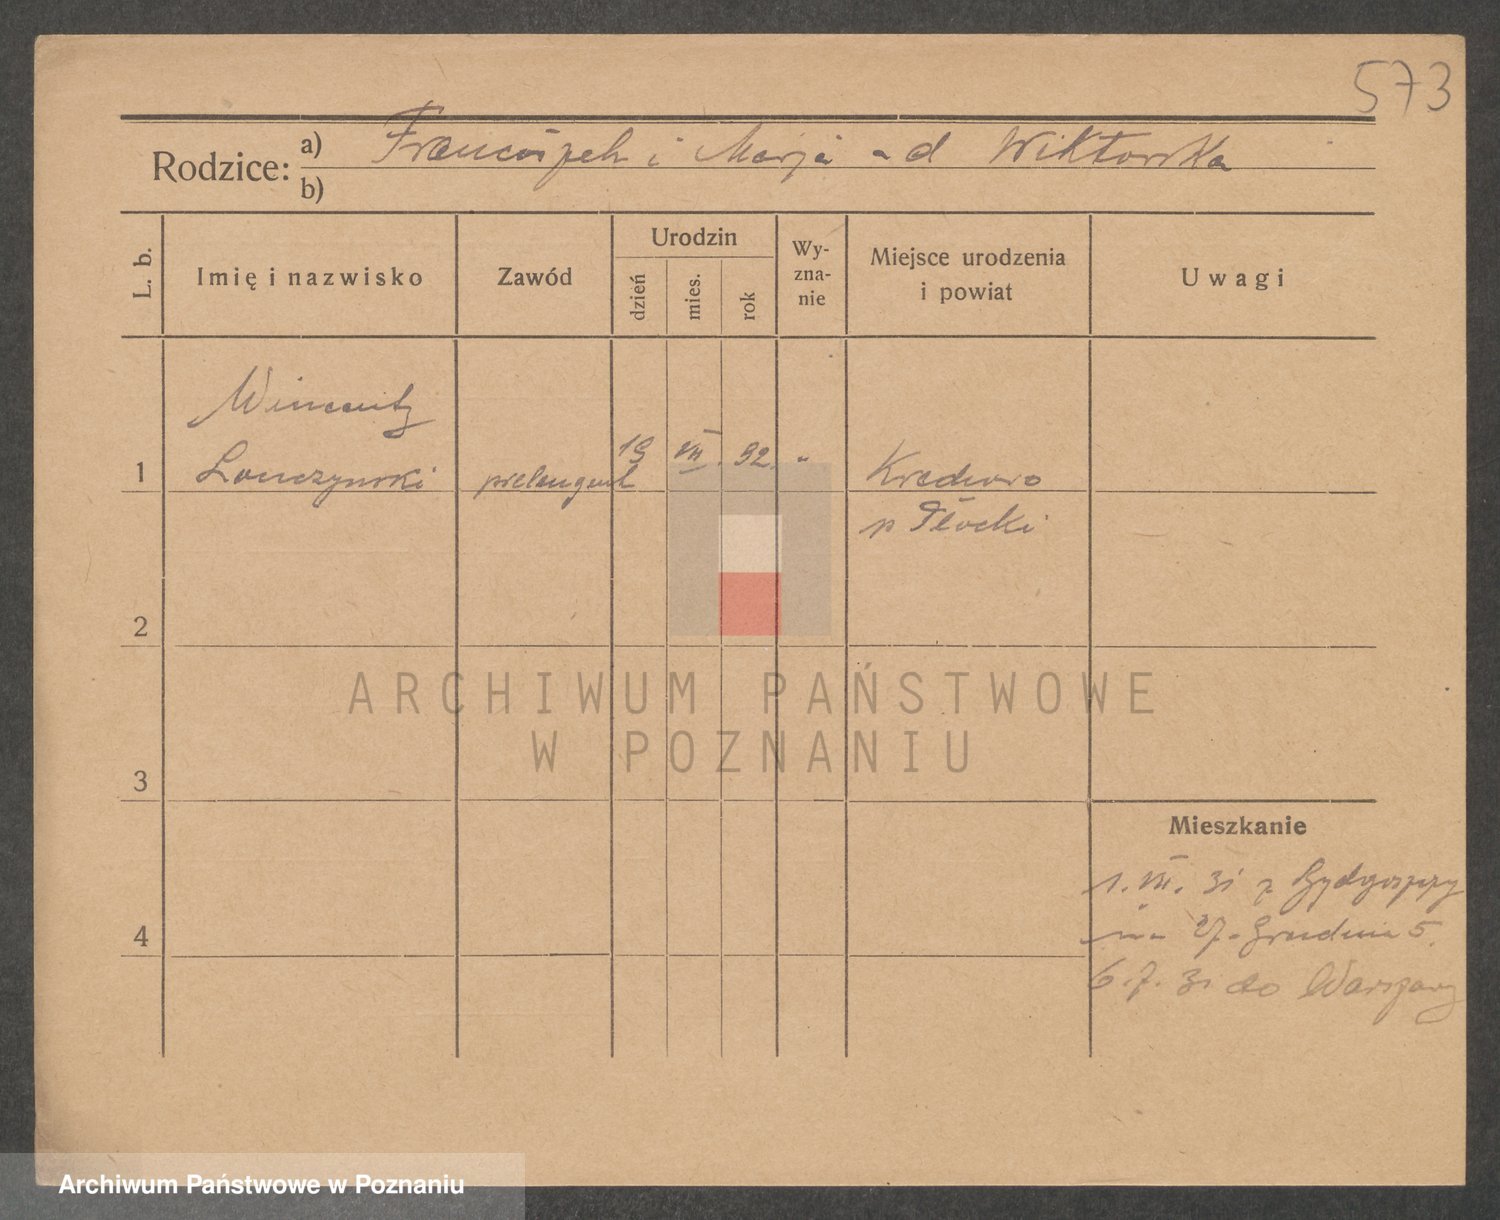 573
Rodzice: a) Franciszek i Marja
b)
L. b.
Imię i nazwisko
Zawód
Urodzin
dzień
mies.
rok
Wy-
zna-
nie
Miejsce urodzenia
i powiat
Uwagi
Wincenty
1 Lonczynski prelengent 19 VII. 92. " Kredworo
p Płocki
2
3
4
Mieszkanie
1. VII. 31 z Bydgoszczy
27. Grudnia 5.
6.7.31 do Warszawy
ARCHIWUM PAŃSTWOWE
W POZNANIU
Archiwum Państwowe w Poznaniu